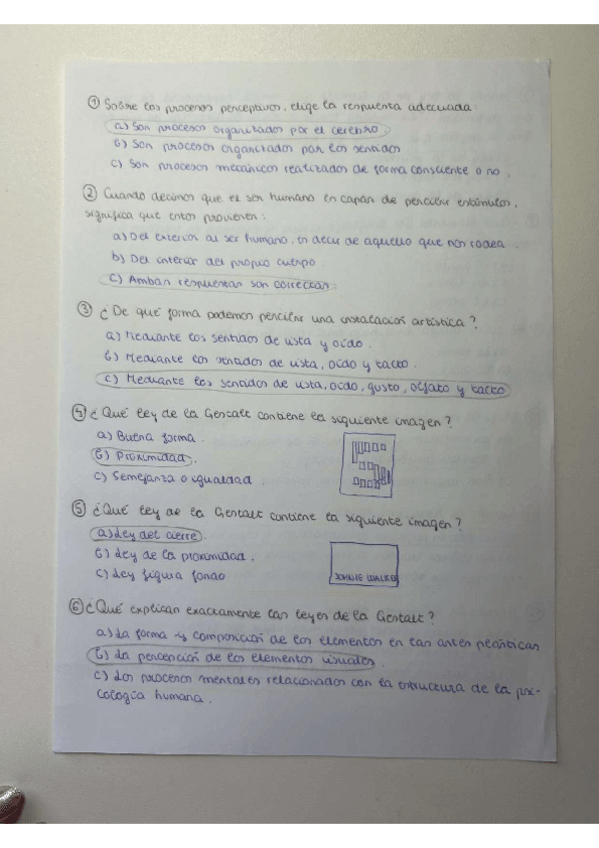 ① Sobre los procesos perceptivos, elige la respuesta adecuada:
a) Son procesos organizados por el cerebro
b) Son procesos organizados por los sentidos
c) Son procesos mecánicos realizados de forma consciente o no.
② Cuando decimos que el ser humano es capaz de percibir estímulos,
significa que estos provienen:
a) Del exterior al ser humano, es decir de aquello que nos rodea.
b) Del interior del propio cuerpo.
c) Ambas respuestas son correctas.
③ ¿De qué forma podemos percibir una instalación artística?
a) Mediante los sentidos de vista y oído.
b) Mediante los sentidos de vista, oído y tacto.
c) Mediante los sentidos de vista, oído, gusto, olfato y tacto
④ ¿Qué ley de la Gestalt contiene la siguiente imagen?
a) Buena forma.
b) Proximidad.
c) Semejanza o igualdad.
⑤ ¿Qué ley de la Gestalt contiene la siguiente imagen?
a) Ley del cierre.
b) Ley de la proximidad.
c) Ley figura fondo
JOHNNIE WALKER
⑥ ¿Qué explican exactamente las leyes de la Gestalt?
a) La forma y composición de los elementos en las artes plásticas
b) La percepción de los elementos visuales.
c) Los procesos mentales relacionados con la estructura de la psi-
cología humana.